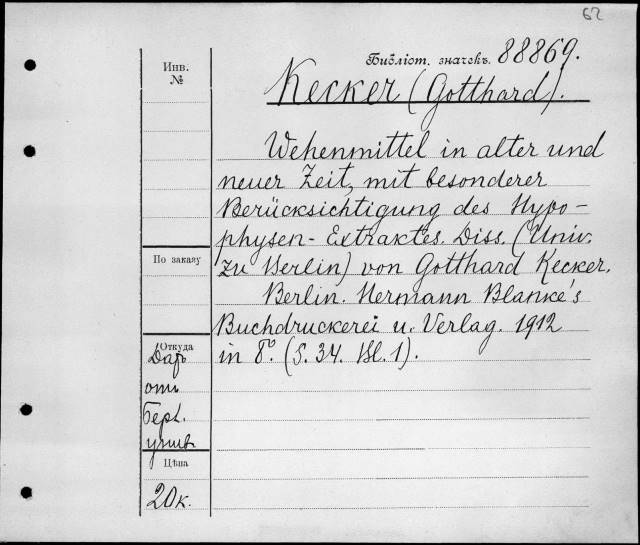 62
Библіот. значекъ. 88869.
Инв.
№
Kecker (Gotthard).
Wehenmittel in alter und
neuer Zeit, mit besonderer
Berücksichtigung des Hypo-
physen-Extraktes. Diss. (Univ.
zu Berlin) von Gotthard Kecker.
Berlin. Hermann Blanke's
Buchdruckerei u. Verlag. 1912
in 8°. (S. 34. Bl. 1).
По заказу
Откуда
Даръ
отъ
Берл.
унив.
Цѣна
20 к.